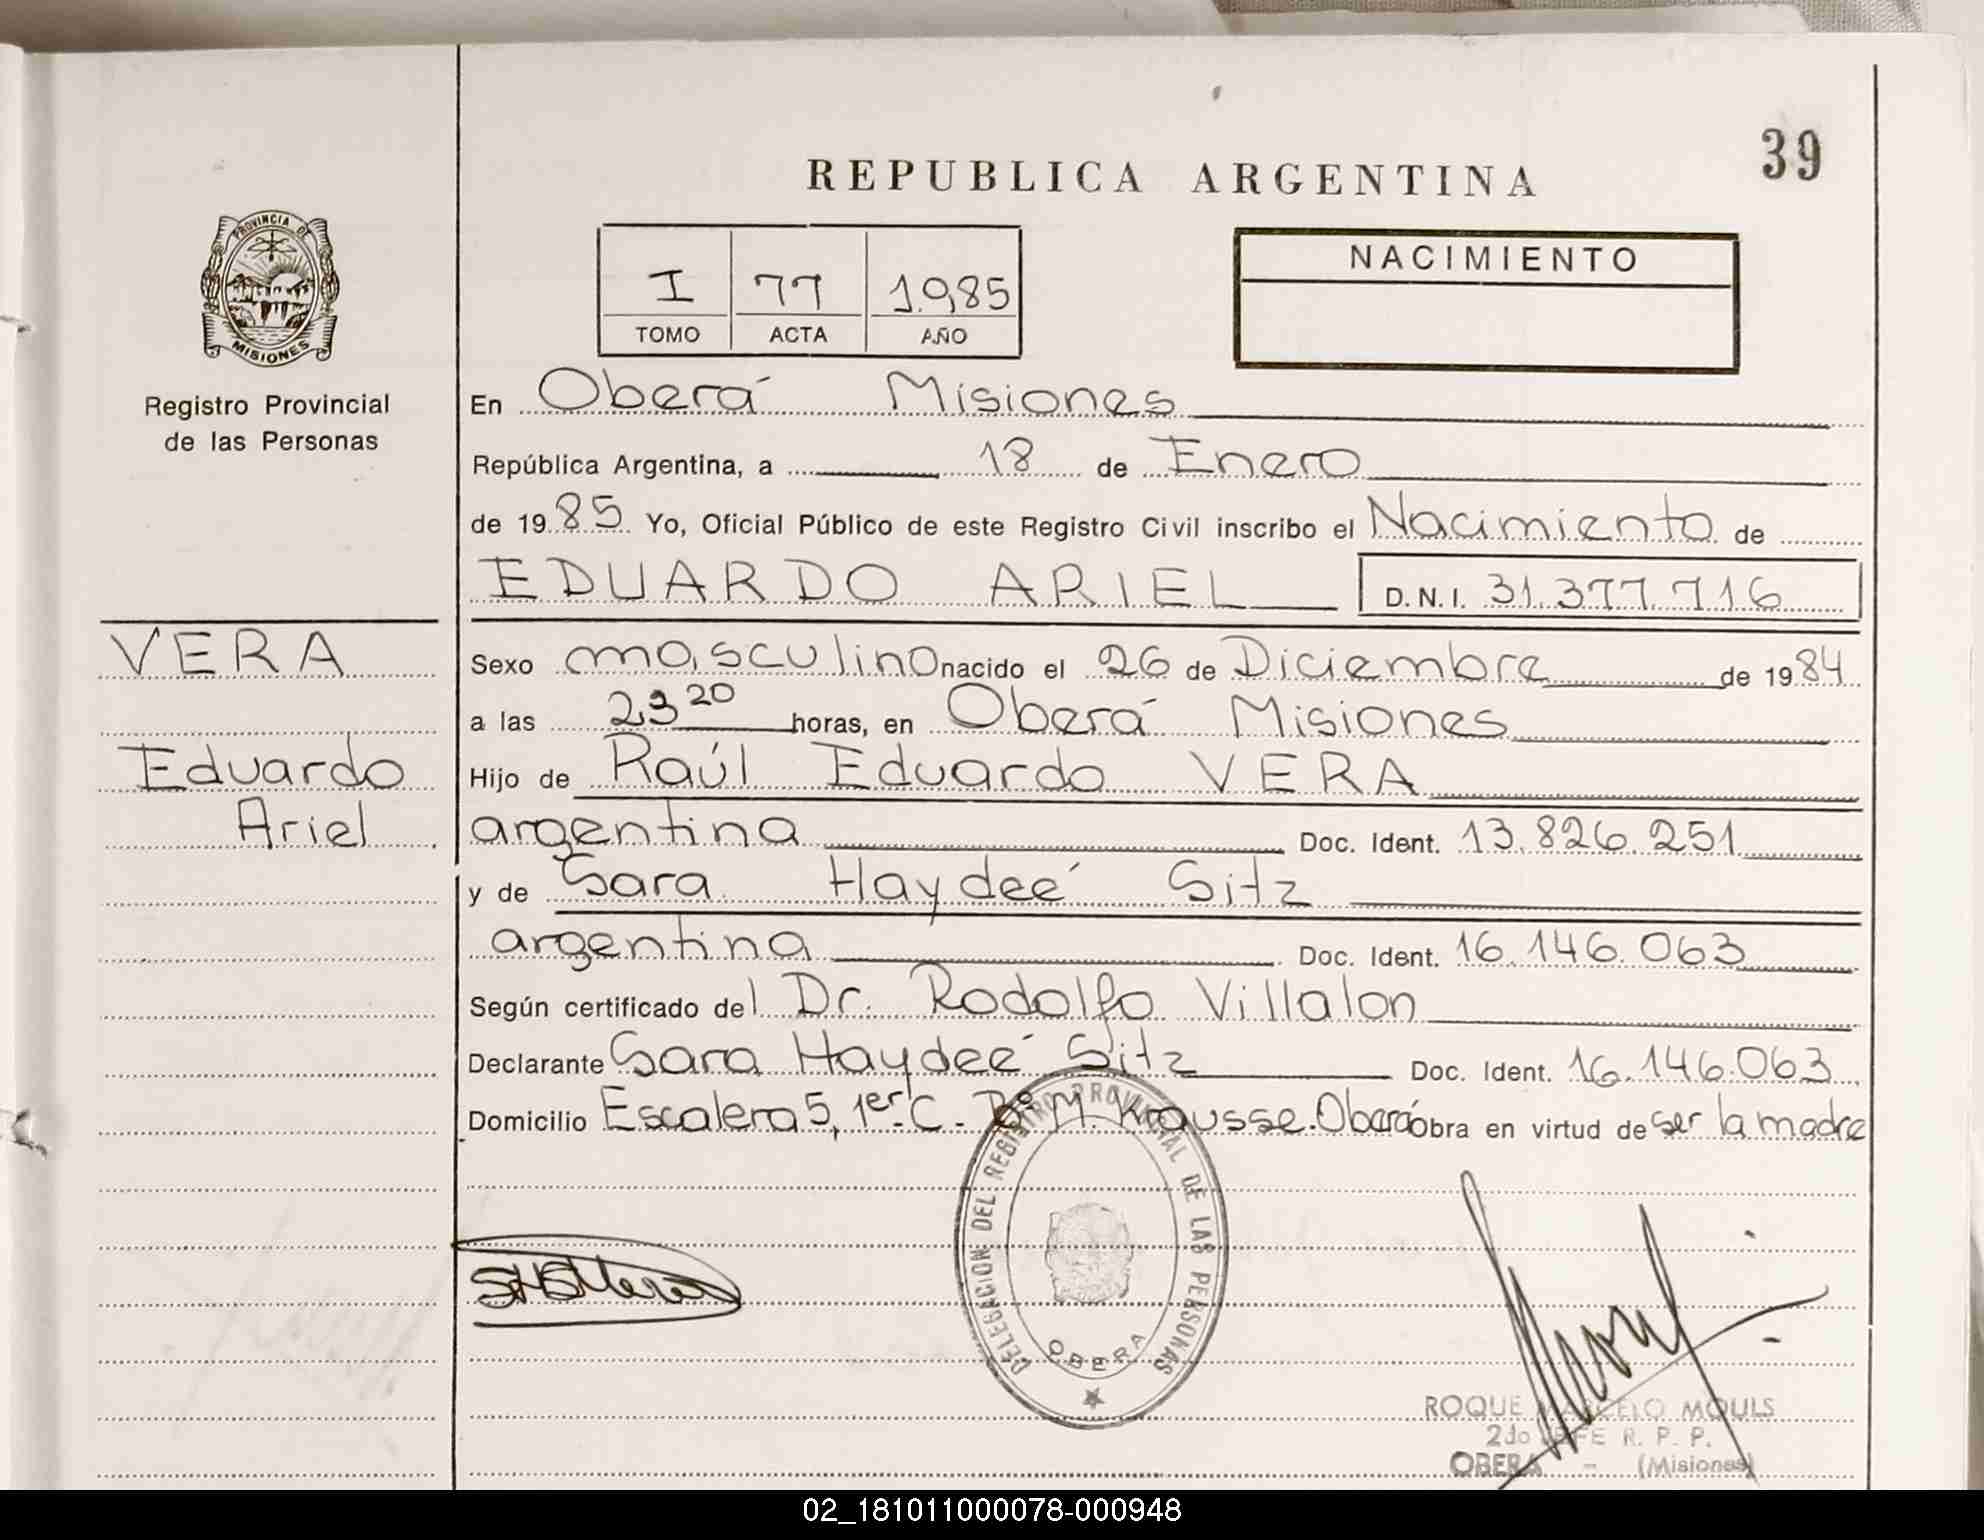 39
REPUBLICA ARGENTINA
PROVINCIA DE
MISIONES
Registro Provincial
de las Personas
I 77 1985
TOMO ACTA AÑO
NACIMIENTO
En Oberá Misiones
República Argentina, a 18 de Enero
de 1985 Yo, Oficial Público de este Registro Civil inscribo el Nacimiento de
EDUARDO ARIEL D.N.I. 31.377.716
VERA
Eduardo
Ariel
Sexo masculino nacido el 26 de Diciembre de 1984
a las 23 20 horas, en Oberá Misiones
Hijo de Raúl Eduardo VERA
argentina Doc. Ident. 13.826.251
y de Sara Haydeé Sitz
argentina Doc. Ident. 16.146.063
Según certificado del Dr. Rodolfo Villalon
Declarante Sara Haydeé Sitz Doc. Ident. 16.146.063
Domicilio Escalera 5, 1er. C. Bº M. Krausse. Oberá Obra en virtud de ser la madre
DELEGACION DEL REGISTRO PROVINCIAL DE LAS PERSONAS
OBERA
ROQUE MARCELO MOULS
2do JEFE R. P. P.
OBERA - (Misiones)
02_181011000078-000948